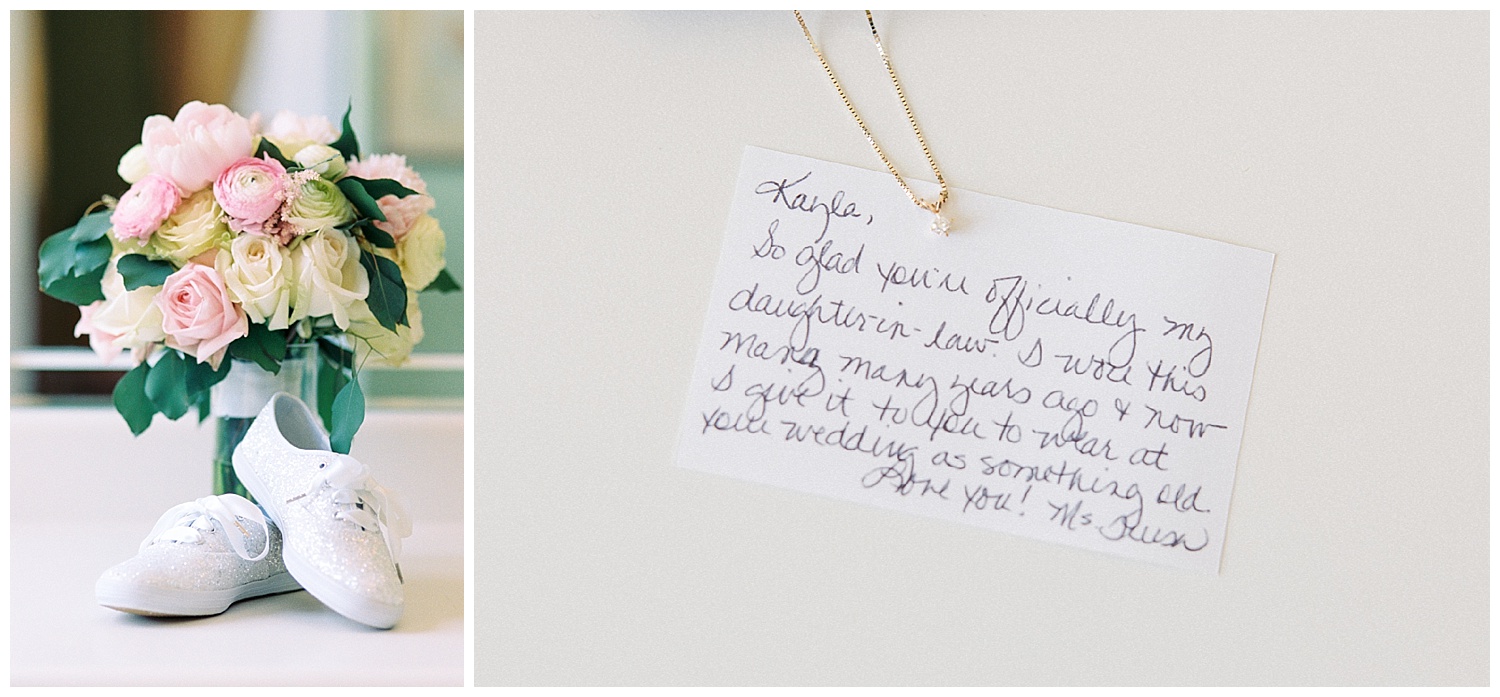 Kayla,
So glad you're officially my
daughter-in-law. I wore this
many many years ago & now
I give it to you to wear at
your wedding as something old.
Love you! Ms.